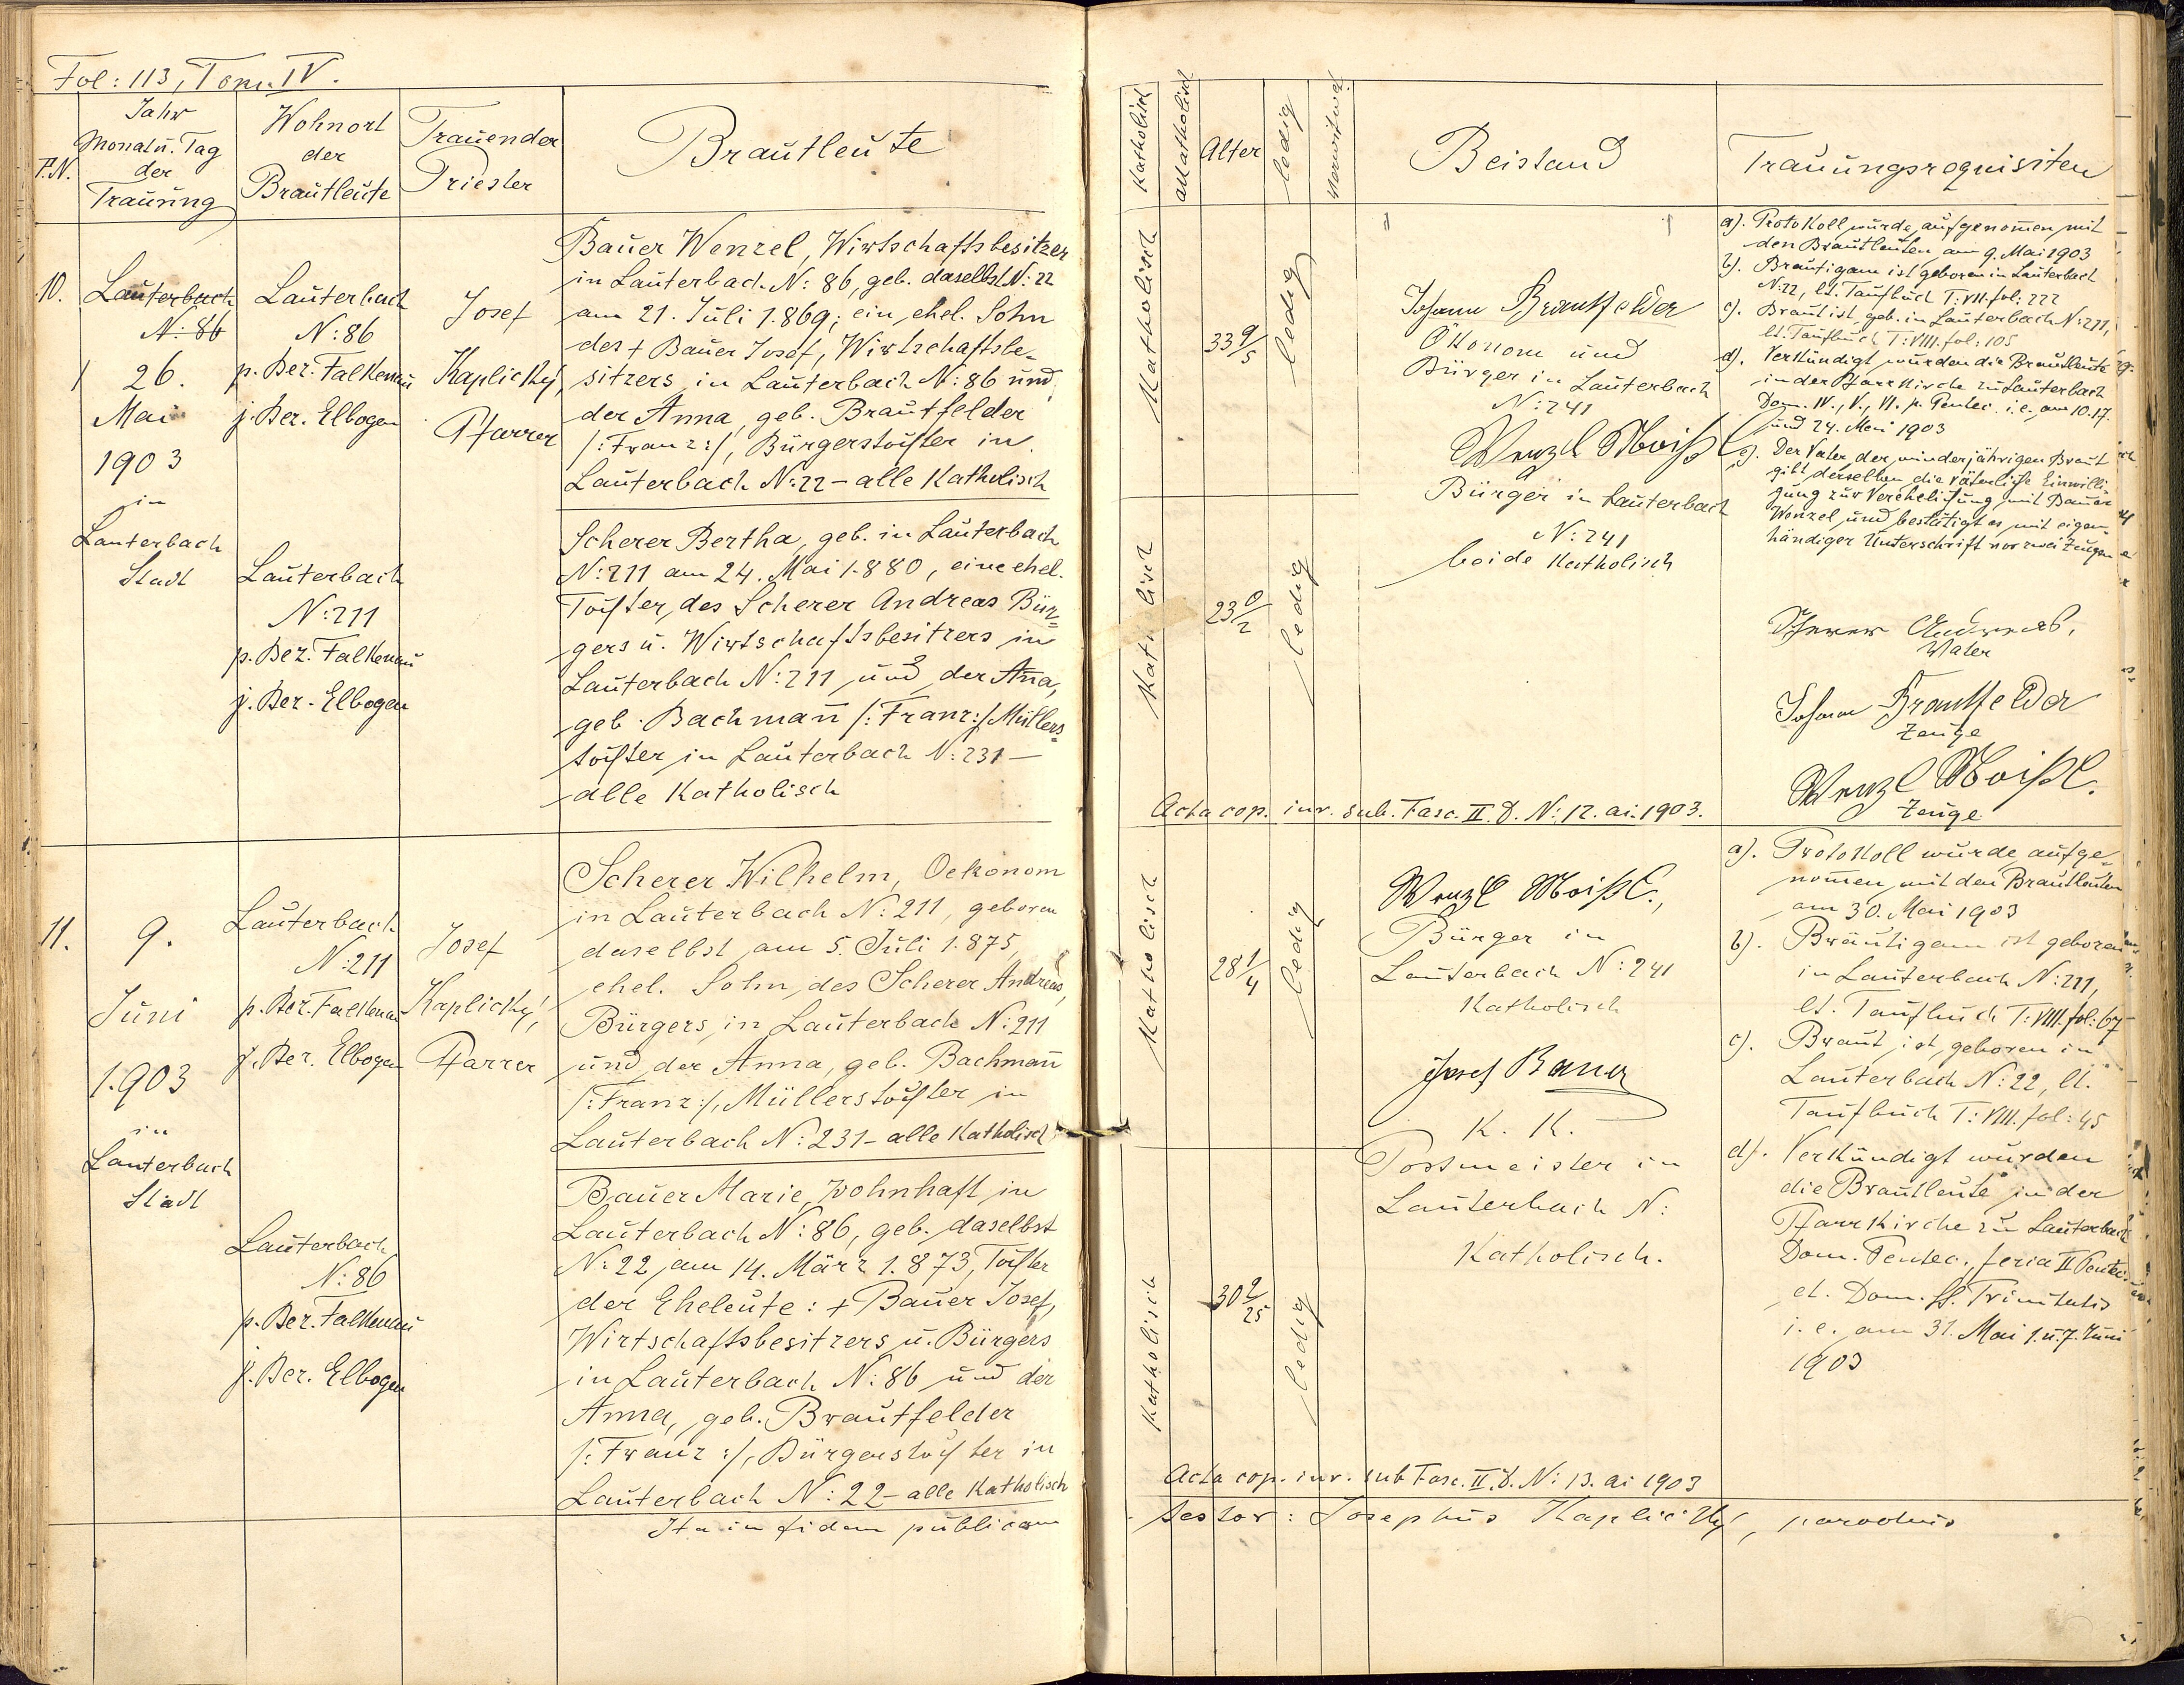 Fol: 113, Tom. IV.
P.N.
Jahr
Monat u. Tag
der
Trauung
Wohnort
der
Brautleute
Trauender
Priester
Brautleute
10.
Lauterbach
N: 86
26.
Mai
1903
in
Lauterbach
Stadt
Lauterbach
N: 86
p. Bez. Falkenau
j. Bez. Elbogen
Josef
Kaplický,
Pfarrer
Bauer Wenzel, Wirtschaftsbesitzer
in Lauterbach N: 86, geb. daselbst N: 22
am 21. Juli 1869; ein ehel. Sohn
des + Bauer Josef, Wirtschaftsbe-
sitzers in Lauterbach N: 86 und
der Anna, geb. Brautfelder
/: Franz :/, Bürgerstochter in
Lauterbach N: 22 - alle Katholisch
Lauterbach
N: 211
p. Bez. Falkenau
j. Bez. Elbogen
Scherer Bertha, geb. in Lauterbach
N: 211 am 24. Mai 1880, eine ehel.
Tochter des Scherer Andreas Bür=
gers u. Wirtschaftsbesitzers in
Lauterbach N: 211 und der Anna,
geb. Bachmann /: Franz :/ Müllers=
tochter in Lauterbach N: 231 -
alle Katholisch
11.
9.
Juni
1903
in
Lauterbach
Stadt
Lauterbach
N: 211
p. Bez. Falkenau
j. Bez. Elbogen
Josef
Kaplický,
Pfarrer
Scherer Wilhelm, Oekonom
in Lauterbach N: 211, geboren
daselbst am 5. Juli 1875,
ehel. Sohn des Scherer Andreas,
Bürgers in Lauterbach N: 211
und der Anna, geb. Bachmann
/: Franz :/, Müllerstochter in
Lauterbach N: 231 - alle Katholisch
Lauterbach
N: 86
p. Bez. Falkenau
j. Bez. Elbogen
Bauer Marie, wohnhaft in
Lauterbach N: 86, geb. daselbst
N: 22 am 14. März 1873, Tochter
der Eheleute: + Bauer Josef,
Wirtschaftsbesitzers u. Bürgers
in Lauterbach N: 86 und der
Anna, geb. Brautfelder
/: Franz :/, Bürgerstochter in
Lauterbach N: 22 - alle Katholisch
Ita in fidem publicam
Katholisch
akatholisch
Alter
ledig
verwitwet
Beistand
Trauungsrequisiten
Katholisch
33 9/5
ledig
Johann Brautfelder
Ökonom und
Bürger in Lauterbach
N: 241
Wenzl Moißl
Bürger in Lauterbach
N: 241
beide Katholisch
Katholisch
23 0/2
ledig
a). Protokoll wurde aufgenommen mit
den Brautleuten am 9. Mai 1903
b). Bräutigam ist geboren in Lauterbach
N: 22, lt. Taufbuch T: VII. fol: 222
c). Braut ist geb. in Lauterbach N: 211,
lt. Taufbuch T: VIII. fol: 105
d). Verkündigt wurden die Brautleute
in der Pfarrkirche zu Lauterbach
Dom. IV., V., VI. p. Pentec. i. e. am 10. 17.
und 24. Mai 1903
e). Der Vater der minderjährigen Braut
gibt derselben die väterliche Einwilli-
gung zur Verehelichung mit Bauer
Wenzel und bestätigt es mit eigen-
händiger Unterschrift vor zwei Zeugen
Scherer Andreas,
Vater
Johann Brautfelder
Zeuge
Wenzl Moißl.
Zeuge
Acta cop. inv. sub. Fasc. II. D. N: 12. ai. 1903.
Katholisch
28 1/4
ledig
Wenzl Moißl.,
Bürger in
Lauterbach N: 241
Katholisch
Josef Bauer
K. K.
Postmeister in
Lauterbach N:
Katholisch.
Katholisch
30 2/25
ledig
a). Protokoll wurde aufge-
nommen mit den Brautleuten
am 30. Mai 1903
b). Bräutigam ist geboren
in Lauterbach N: 211,
lt. Taufbuch T: VIII. fol: 67
c). Braut ist geboren in
Lauterbach N: 22, lt.
Taufbuch T: VIII. fol: 45
d). Verkündigt wurden
die Brautleute in der
Pfarrkirche zu Lauterbach
Dom. Pentec., feria II Pentec.
et. Dom. ss. Trinitatis
i. e. am 31. Mai 1. u. 7. Juni
1903
Acta cop. inv. sub Fasc. II. D. N: 13. ai 1903
testor: Josephus Kaplický, parochus